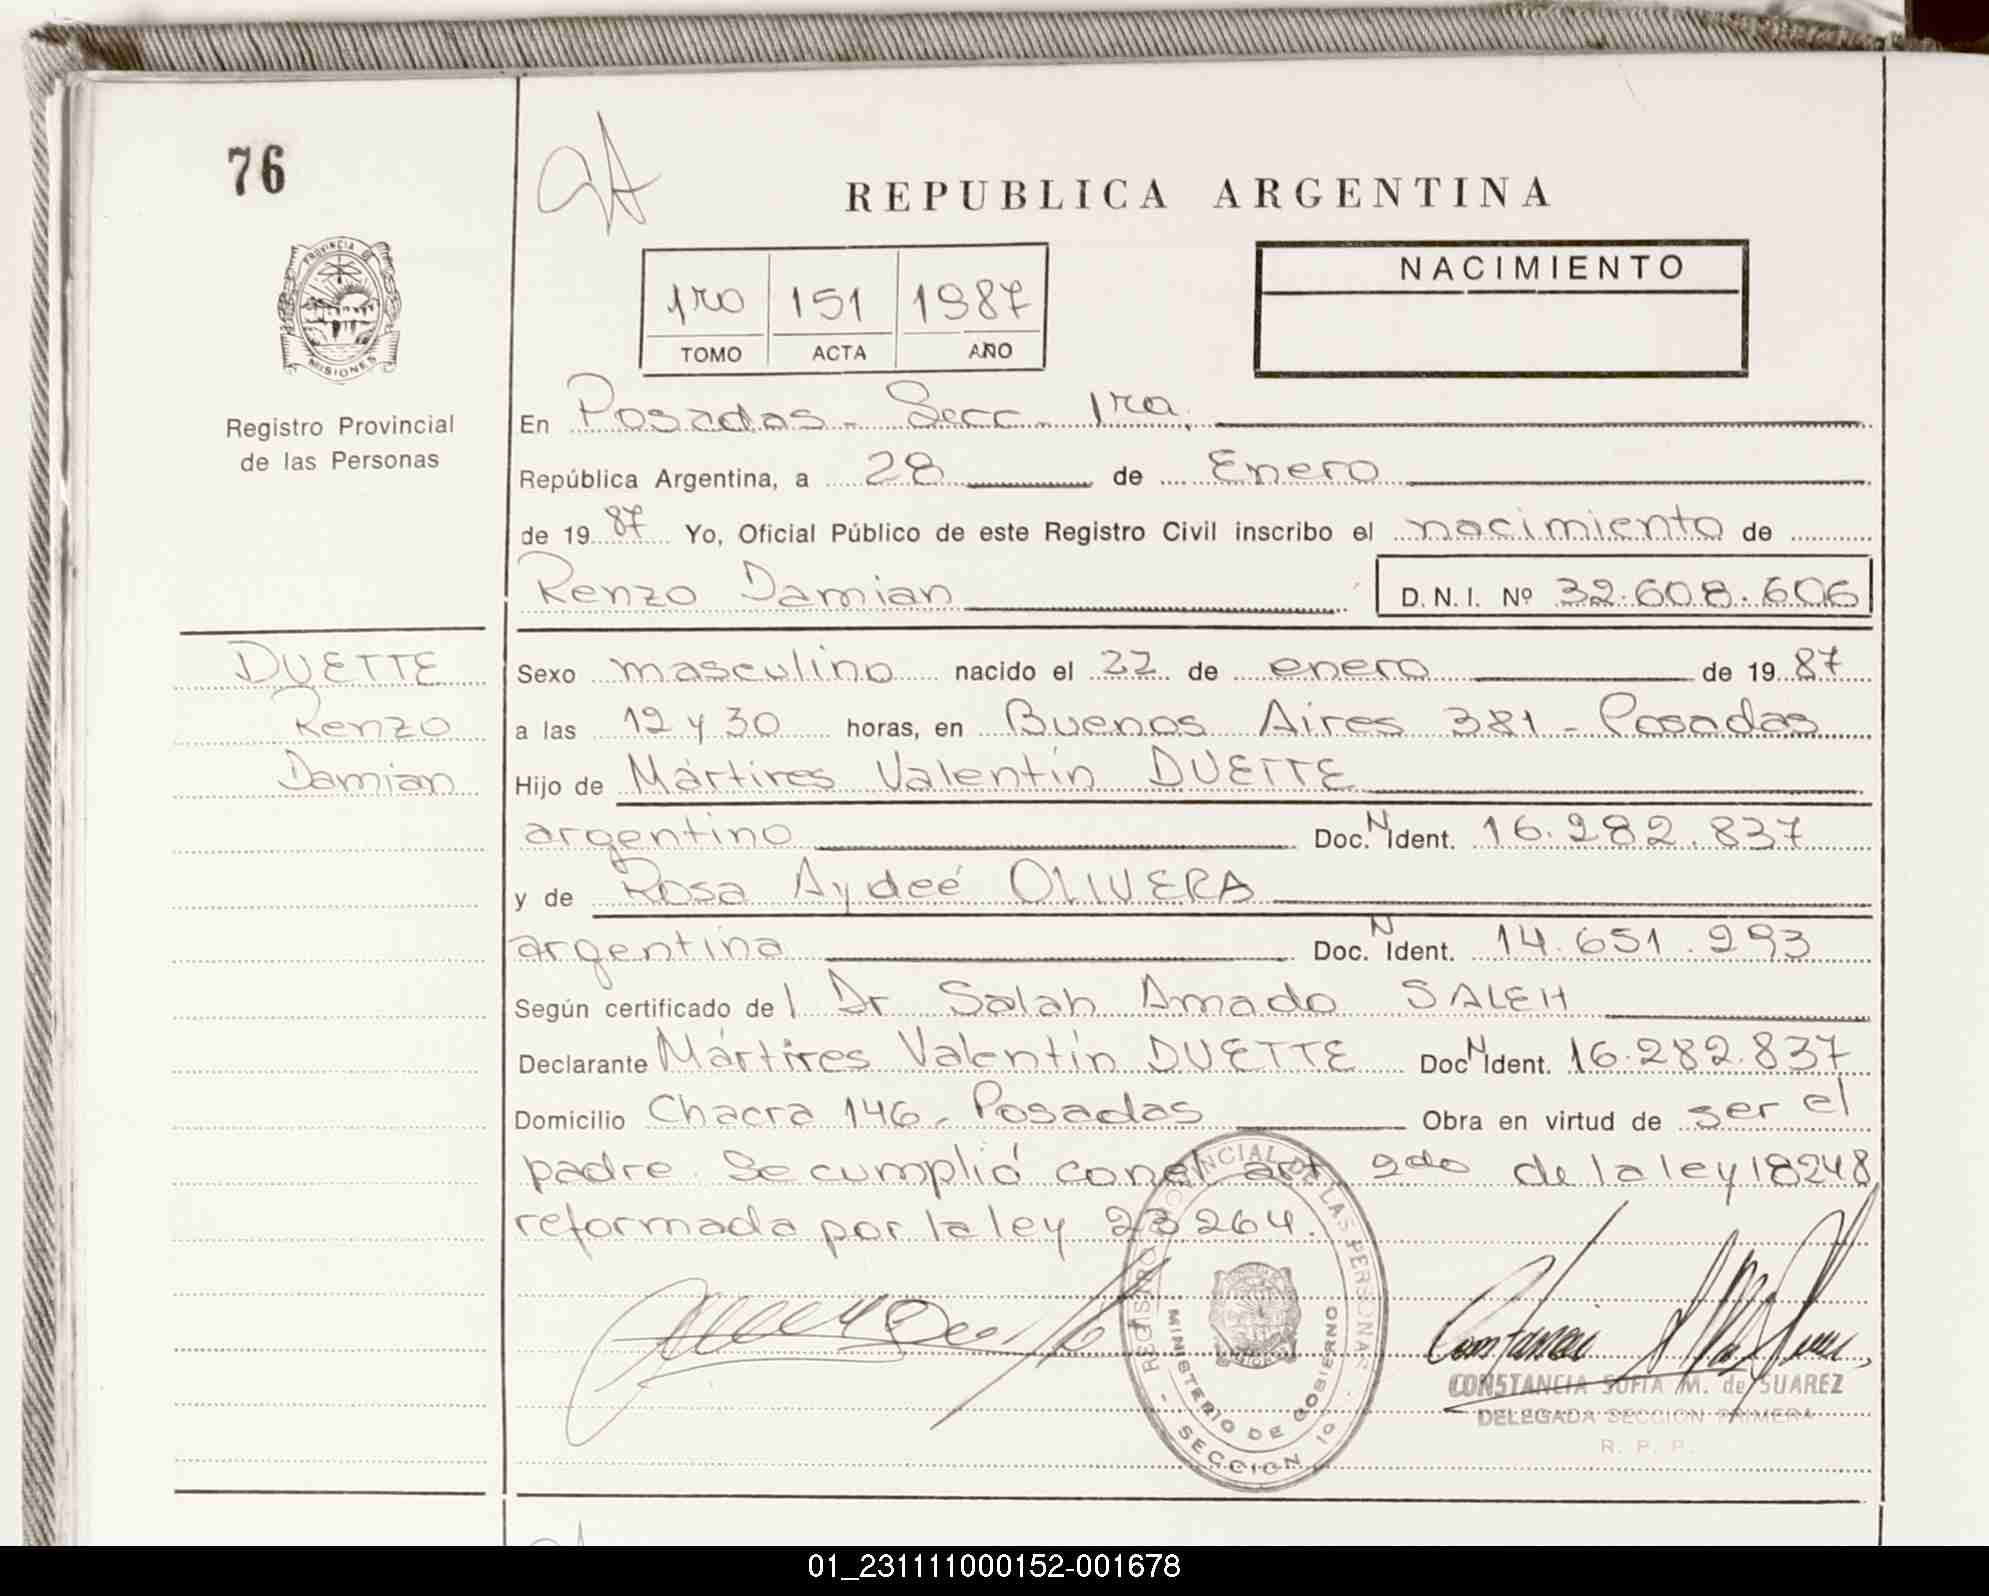 76
REPUBLICA ARGENTINA
PROVINCIA DE MISIONES
1ro 151 1987
TOMO ACTA AÑO
NACIMIENTO
Registro Provincial
de las Personas
En Posadas - Secc - 1ra.
República Argentina, a 28 de Enero
de 1987 Yo, Oficial Público de este Registro Civil inscribo el nacimiento de
Renzo Damian D.N.I. Nº 32.608.606
DUETTE
Renzo
Damian
Sexo masculino nacido el 22 de enero de 1987
a las 12 y 30 horas, en Buenos Aires 381 - Posadas
Hijo de Mártires Valentín DUETTE
argentino Doc. N Ident. 16.282.837
y de Rosa Aydeé OLIVERA
argentina Doc. N Ident. 14.651.293
Según certificado del Dr Salah Amado SALEH
Declarante Mártires Valentín DUETTE Doc N Ident. 16.282.837
Domicilio Chacra 146 - Posadas Obra en virtud de ser el
padre. Se cumplió con el art 2do de la ley 18248
reformada por la ley 23264.
REGISTRO PROVINCIAL DE LAS PERSONAS
MINISTERIO DE GOBIERNO
- SECCION 10 -
CONSTANCIA SOFIA M. de SUAREZ
DELEGADA SECCION PRIMERA
R. P. P.
01_231111000152-001678